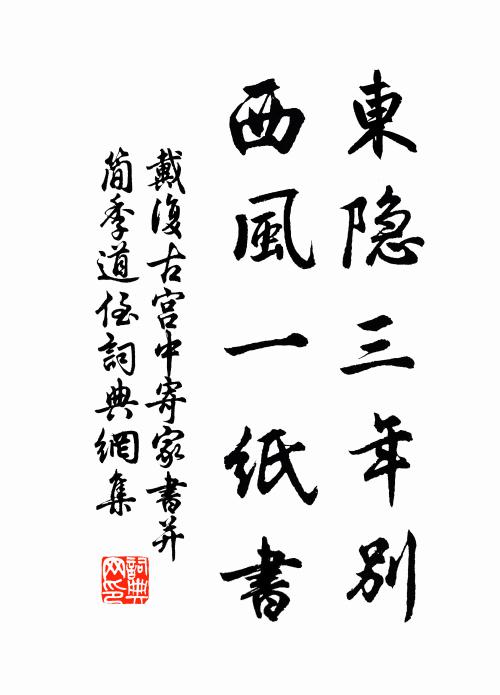 東隐三年别
西風一纸書
戴復古宫中寄家書并
简季道侄詞典網集
詞典
网印